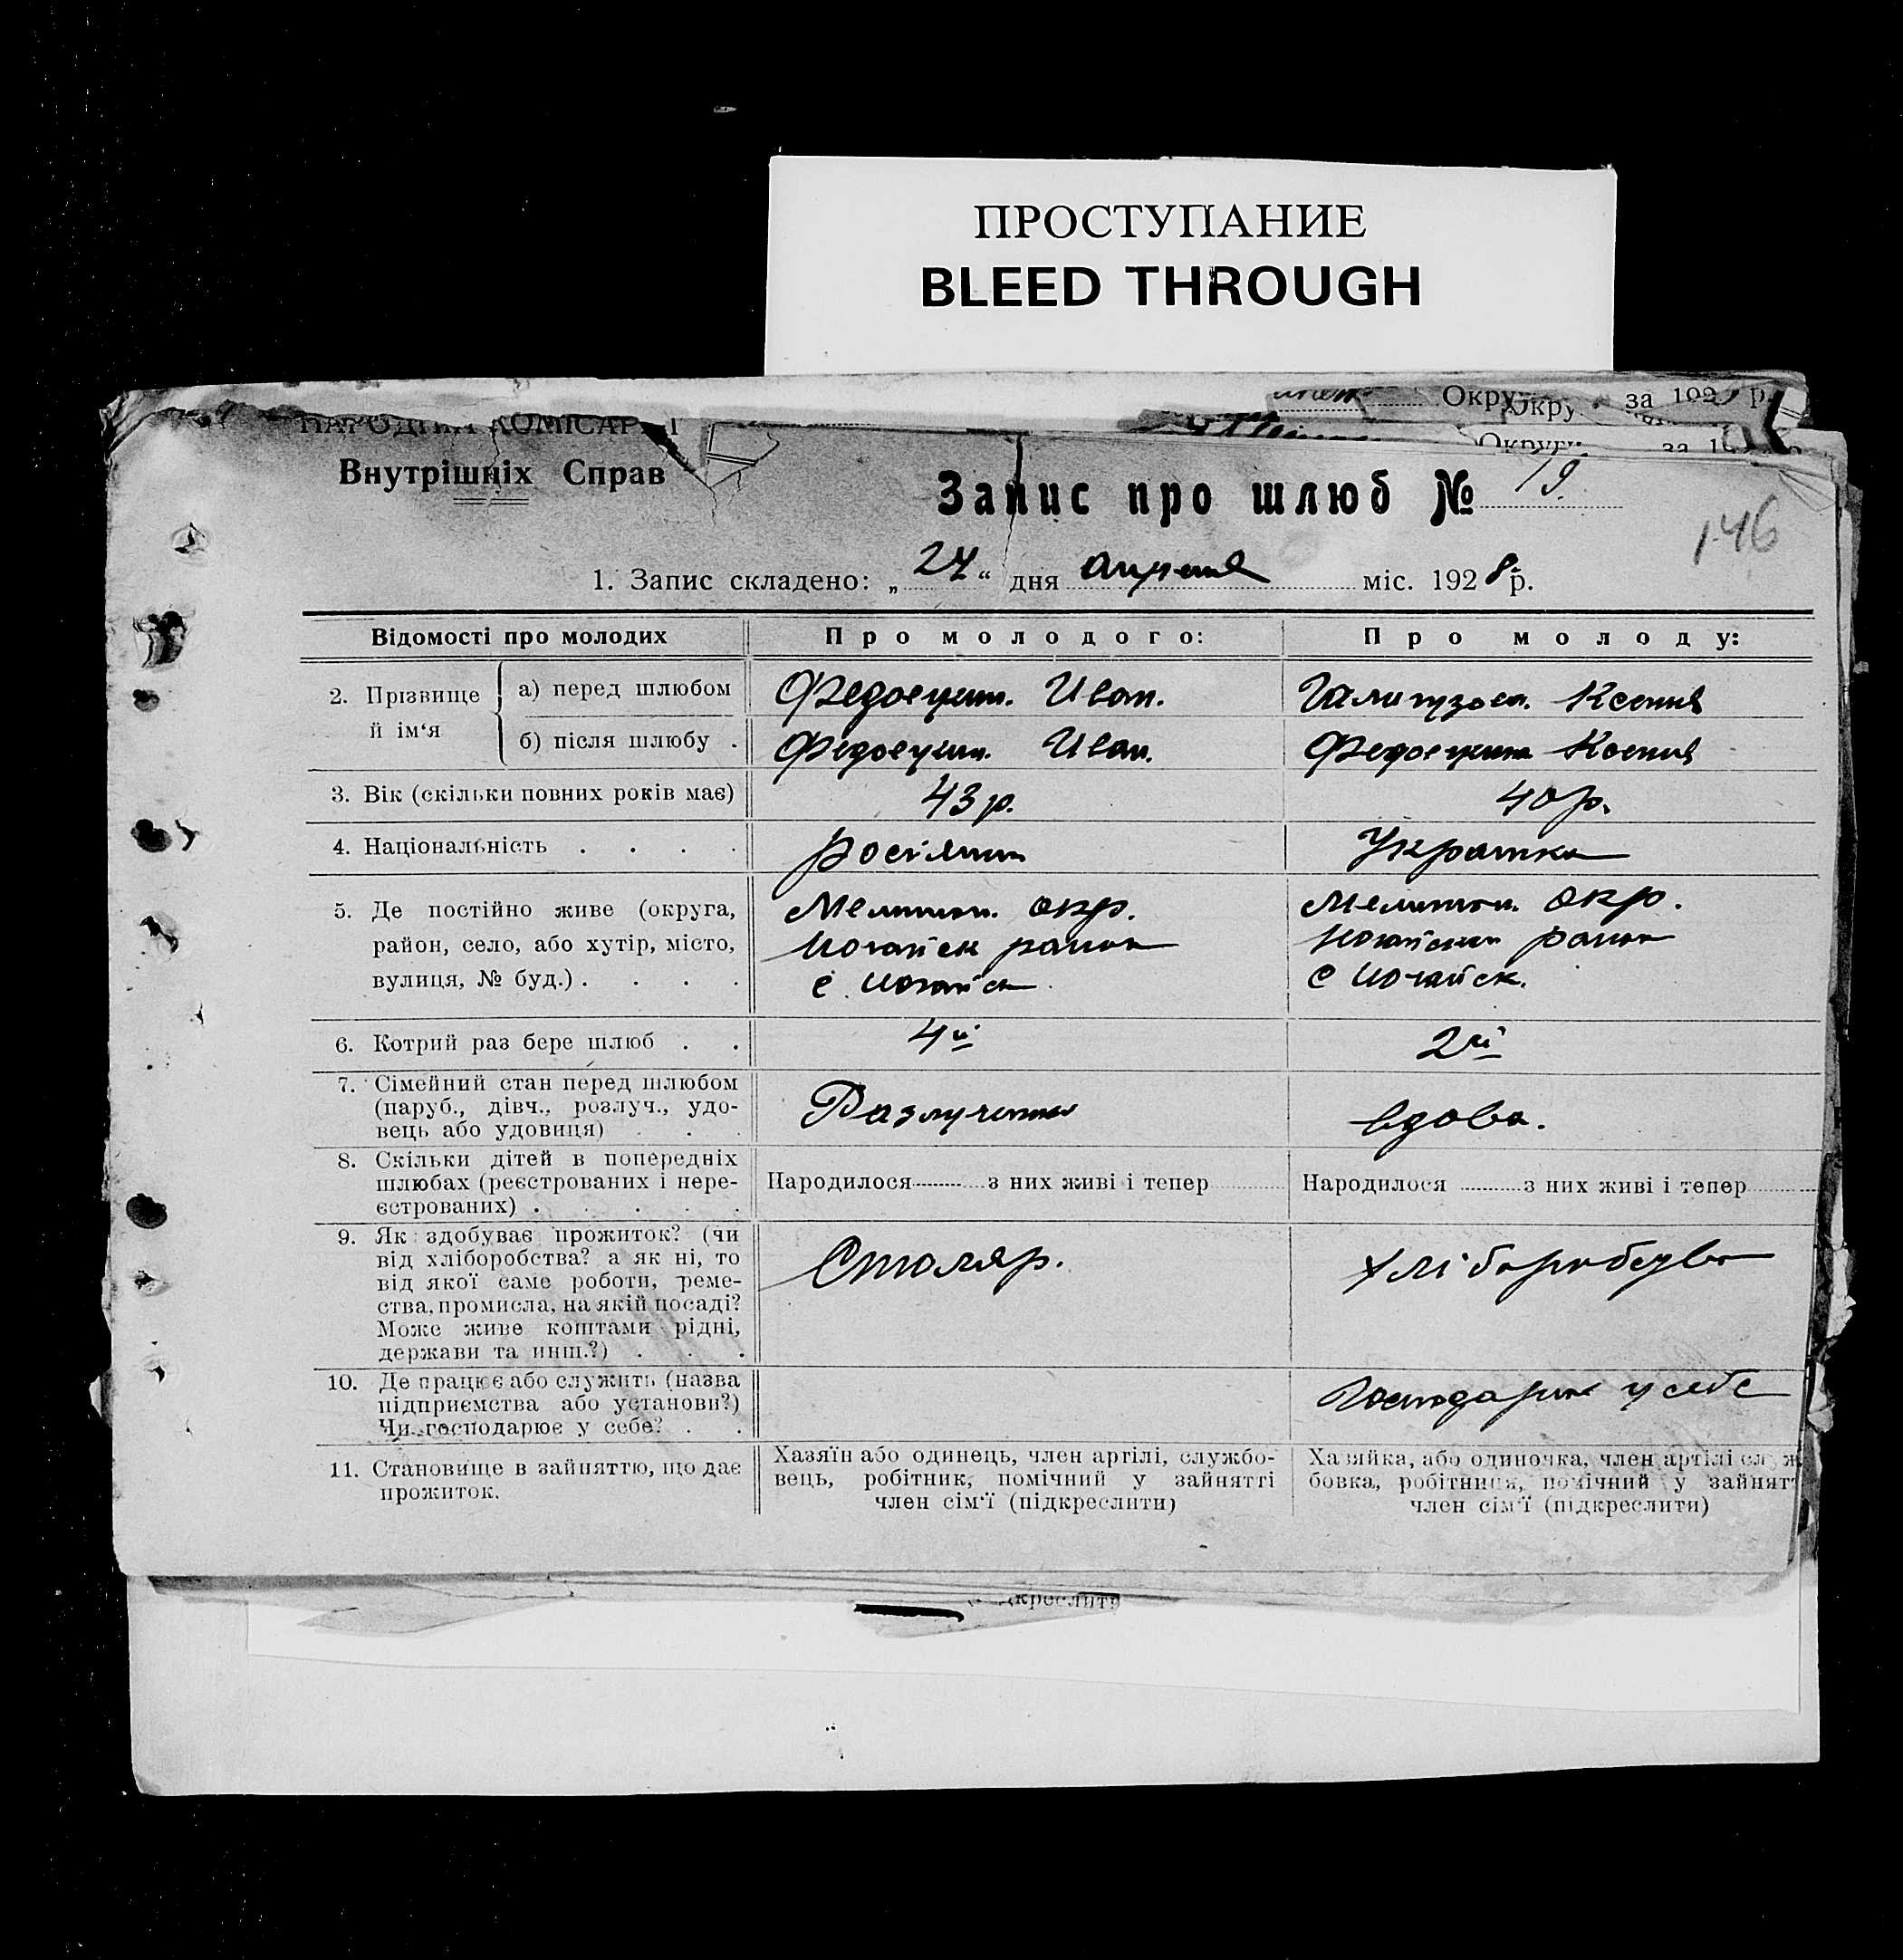 ПРОСТУПАНИЕ
BLEED THROUGH
Окру за 192 р.
Окру
Округи за 1
Внутрішніх Справ
Запис про шлюб № 19.
146
1. Запис складено: „27“ дня апреля міс. 1928 р.
Відомості про молодих Про молодого: Про молоду:
2. Прізвище й ім‘я а) перед шлюбом Иван. Ксения
б) після шлюбу . Иван. Ксения
3. Вік (скільки повних років має) 43 р. 40 р.
4. Національність . . . . росіянин Українка
5. Де постійно живе (округа, Мелитоп. окр. Мелитоп. окр.
район, село, або хутір, місто, Ногайск район Ногайский район
вулиця, № буд.) . . . . . с. Ногайск с Ногайск.
6. Котрий раз бере шлюб . . 4й 2й
7. Сімейний стан перед шлюбом
(паруб., дівч., розлуч., удо- Разлучений вдова.
вець або удовиця) . . .
8. Скільки дітей в попередніх
шлюбах (реєстрованих і нере- Народилося ... з них живі і тепер ... Народилося ... з них живі і тепер ...
єстрованих) . . . . .
9. Як здобуває прожиток? (чи
від хліборобства? а як ні, то Столяр.
від якої саме роботи, реме-
ства, промисла, на якій посаді?
Може живе коштами рідні,
держави та инш.?) . . .
10. Де працює або служить (назва у себе
підприємства або установи?)
Чи господарює у себе? . .
11. Становище в зайняттю, що дає
прожиток.
Хазяїн або одинець, член артілі, службо-
вець, робітник, помічний у зайнятті
член сім‘ї (підкреслити)
Хазяйка, або одиночка, член артілі служ
бовка, робітниця, помічний у зайнят
член сім‘ї (підкреслити)